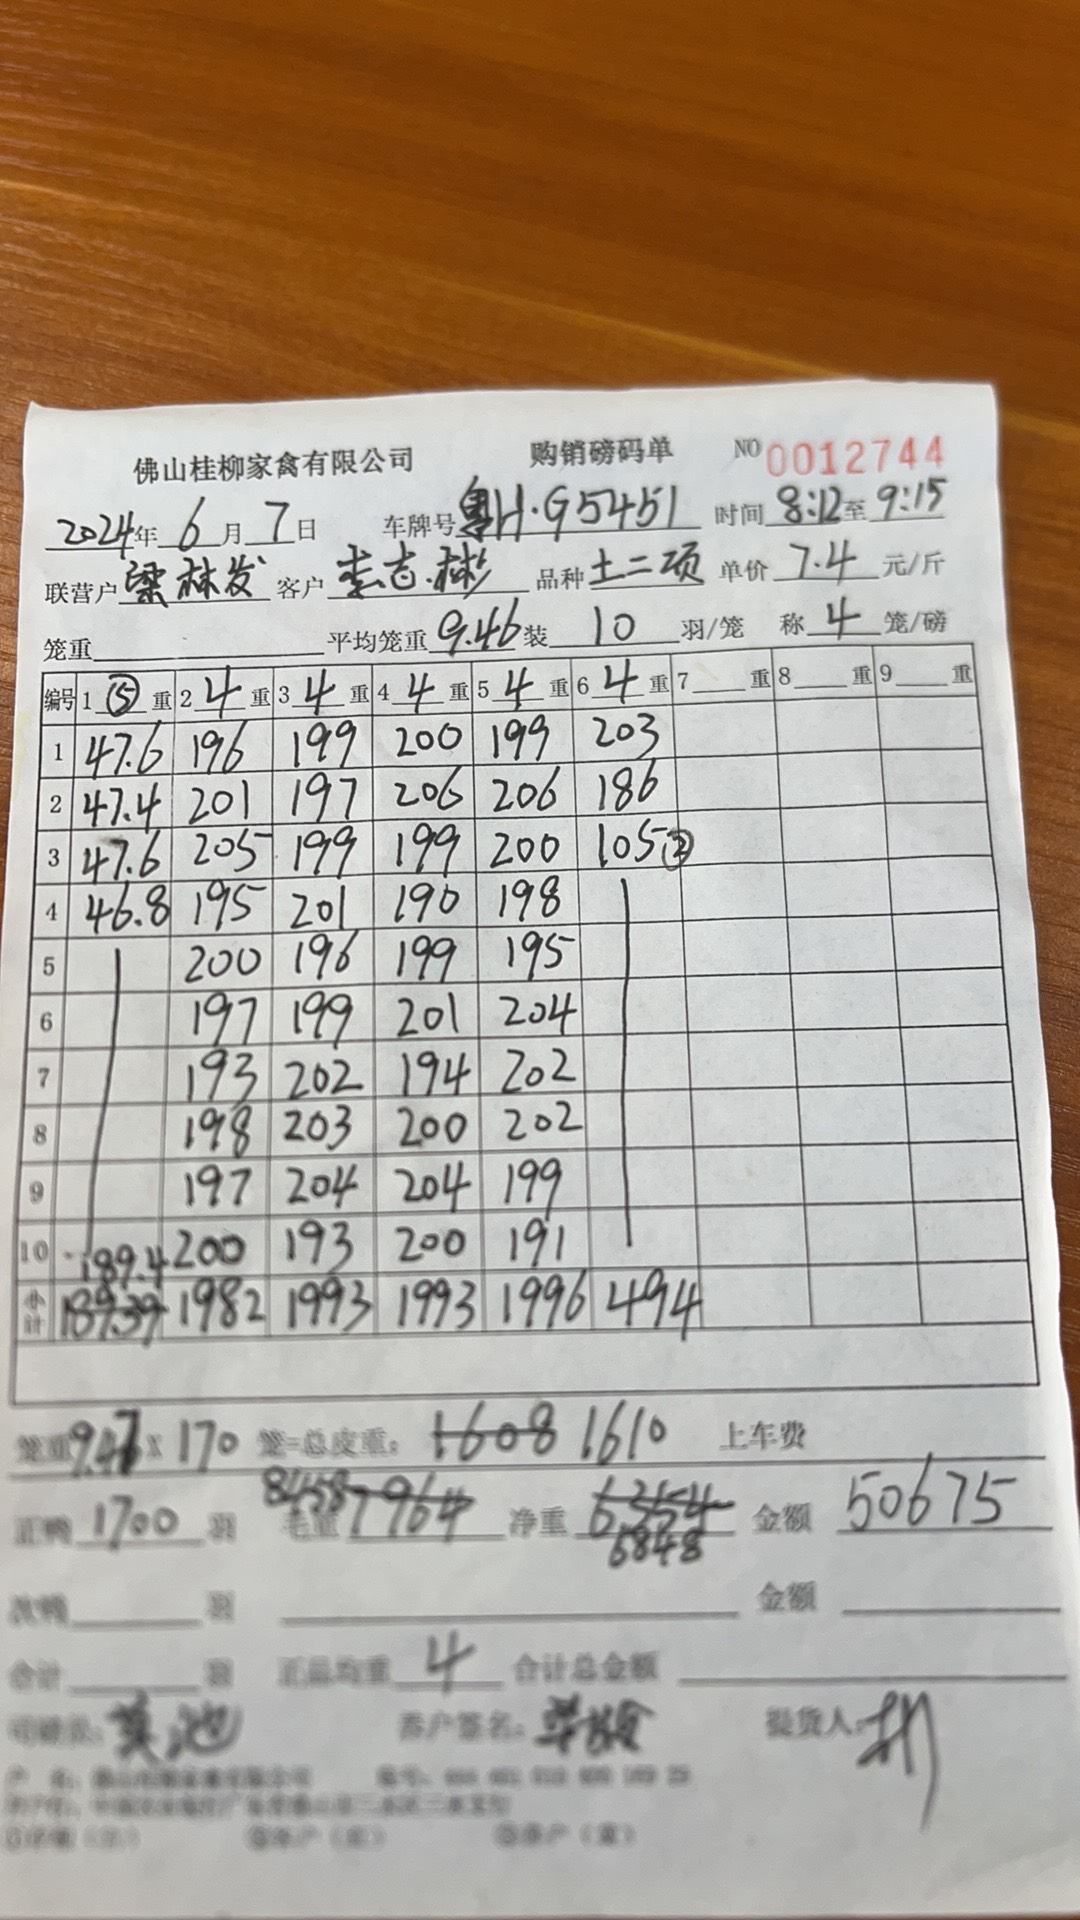 佛山桂柳家禽有限公司 购销磅码单 NO 0012744
2024年 6月 7日 车牌号 粤H·G5451 时间 8:12至 9:15
联营户 梁林发 客户 李志彬 品种 土二项 单价 7.4 元/斤
笼重 平均笼重 9.46 装 10 羽/笼 称 4 笼/磅
编号 1 ⑤ 重 2 4 重 3 4 重 4 4 重 5 4 重 6 4 重 7 重 8 重 9 重
1 47.6 196 199 200 199 203
2 47.4 201 197 206 206 186
3 47.6 205 199 199 200 105②
4 46.8 195 201 190 198
5 200 196 199 195
6 197 199 201 204
7 193 202 194 202
8 198 203 200 202
9 197 204 204 199
10 189.4 200 193 200 191
小计 189.39 1982 1993 1993 1996 494
笼重 9.47 X 170 笼=总皮重: 1608 1610 上车费
正鸭 1700 羽 毛重 8458 7964 净重 6354 6848 金额 50675
次鸭 羽 金额
合计 羽 正品均重 4 合计总金额
司磅员: 养户签名: 提货人: